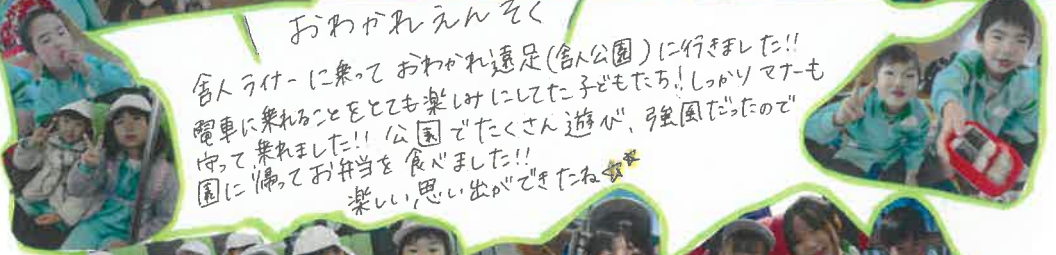 おわかれえんそく
舎人ライナーに乗って おわかれ遠足(舎人公園)に行きました!!
電車に乗れることをとても楽しみにしてた子どもたち!しっかりマナーも
守って乗れました!! 公園でたくさん遊び、強風だったので
園に帰ってお弁当を食べました!!
楽しい思い出ができたね☆★